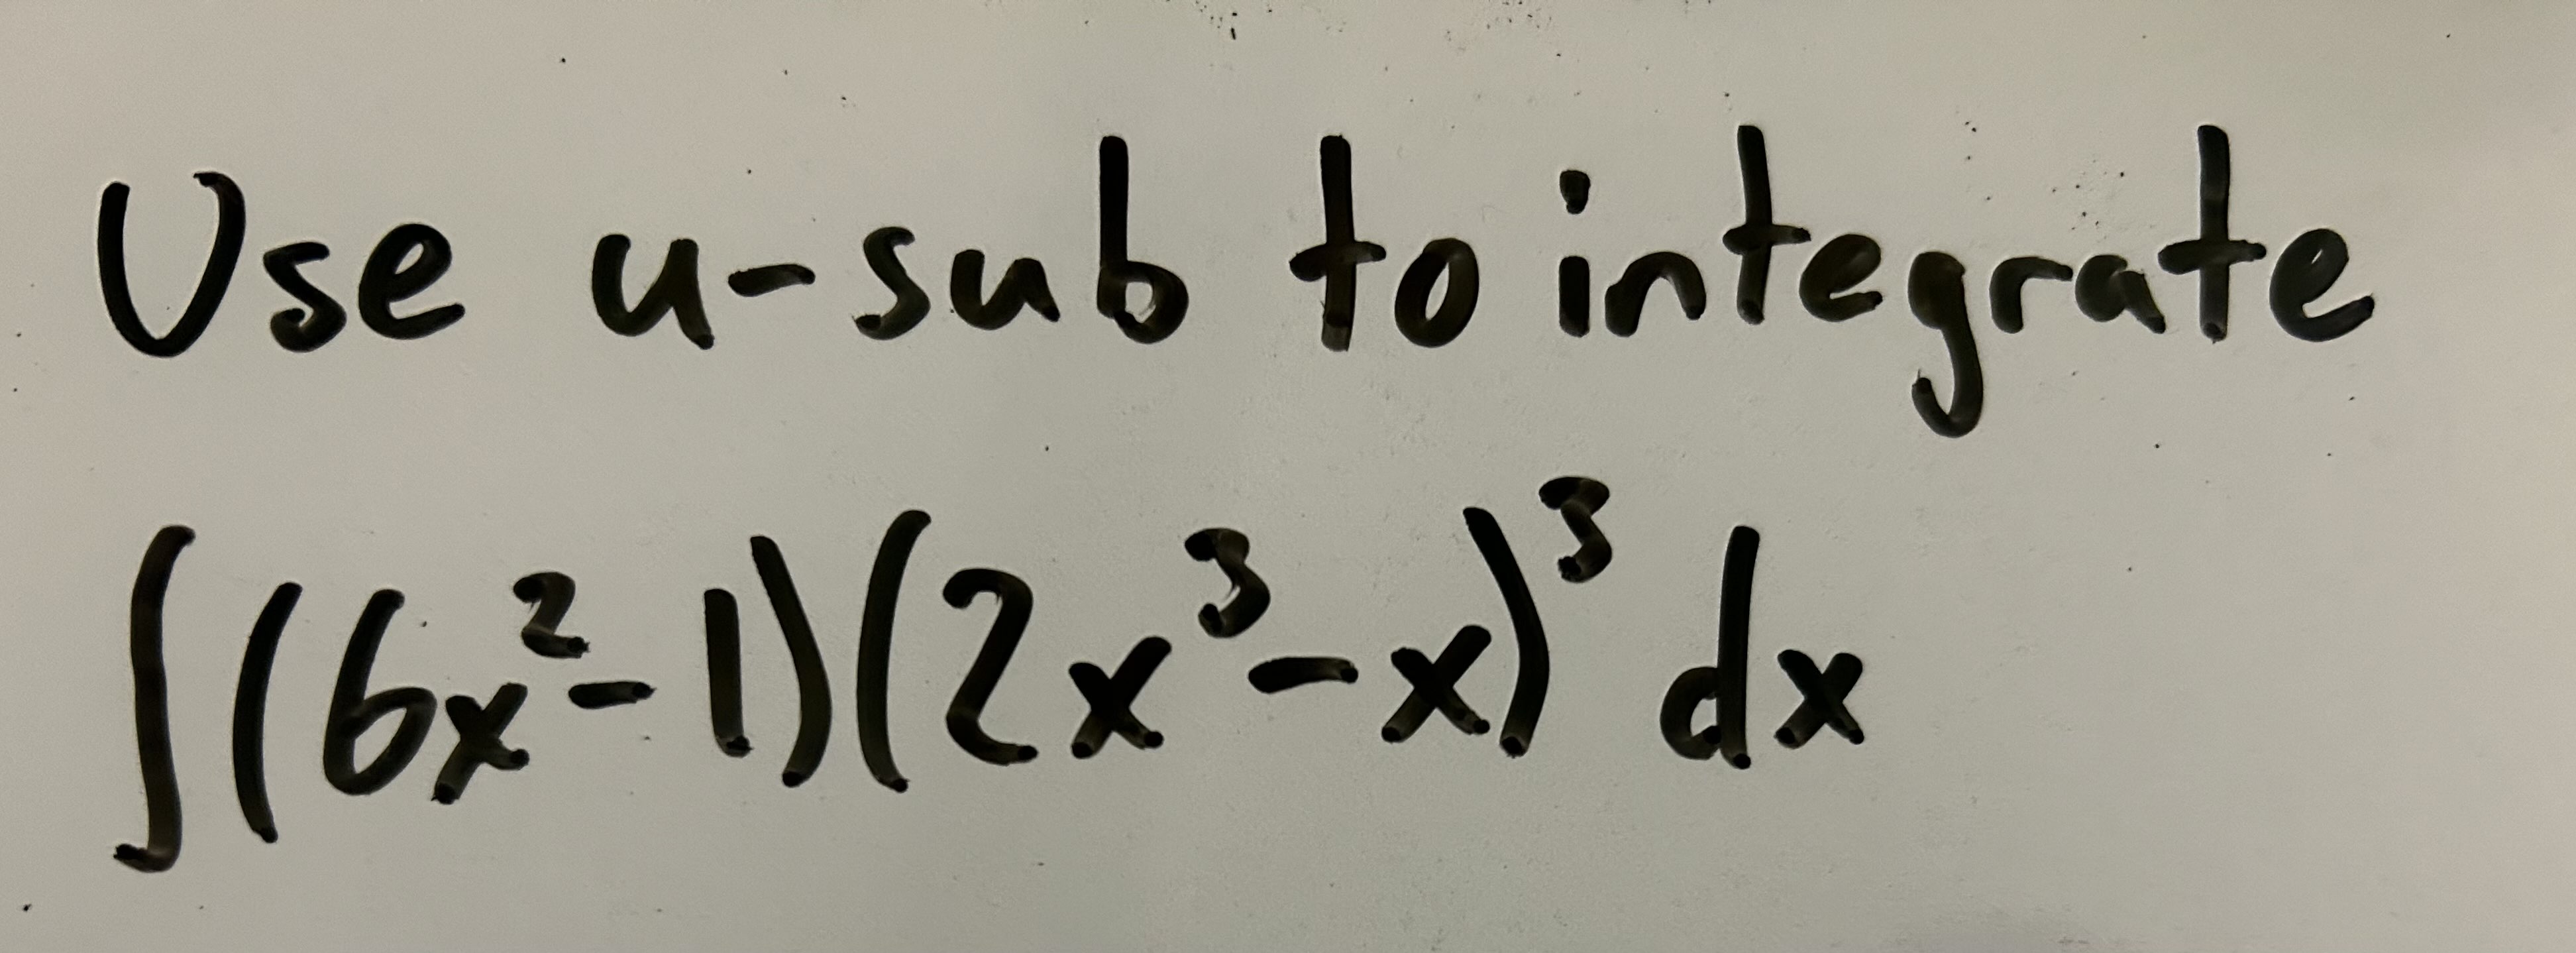 Use u-sub to integrate
∫(6x²-1)(2x³-x)³ dx